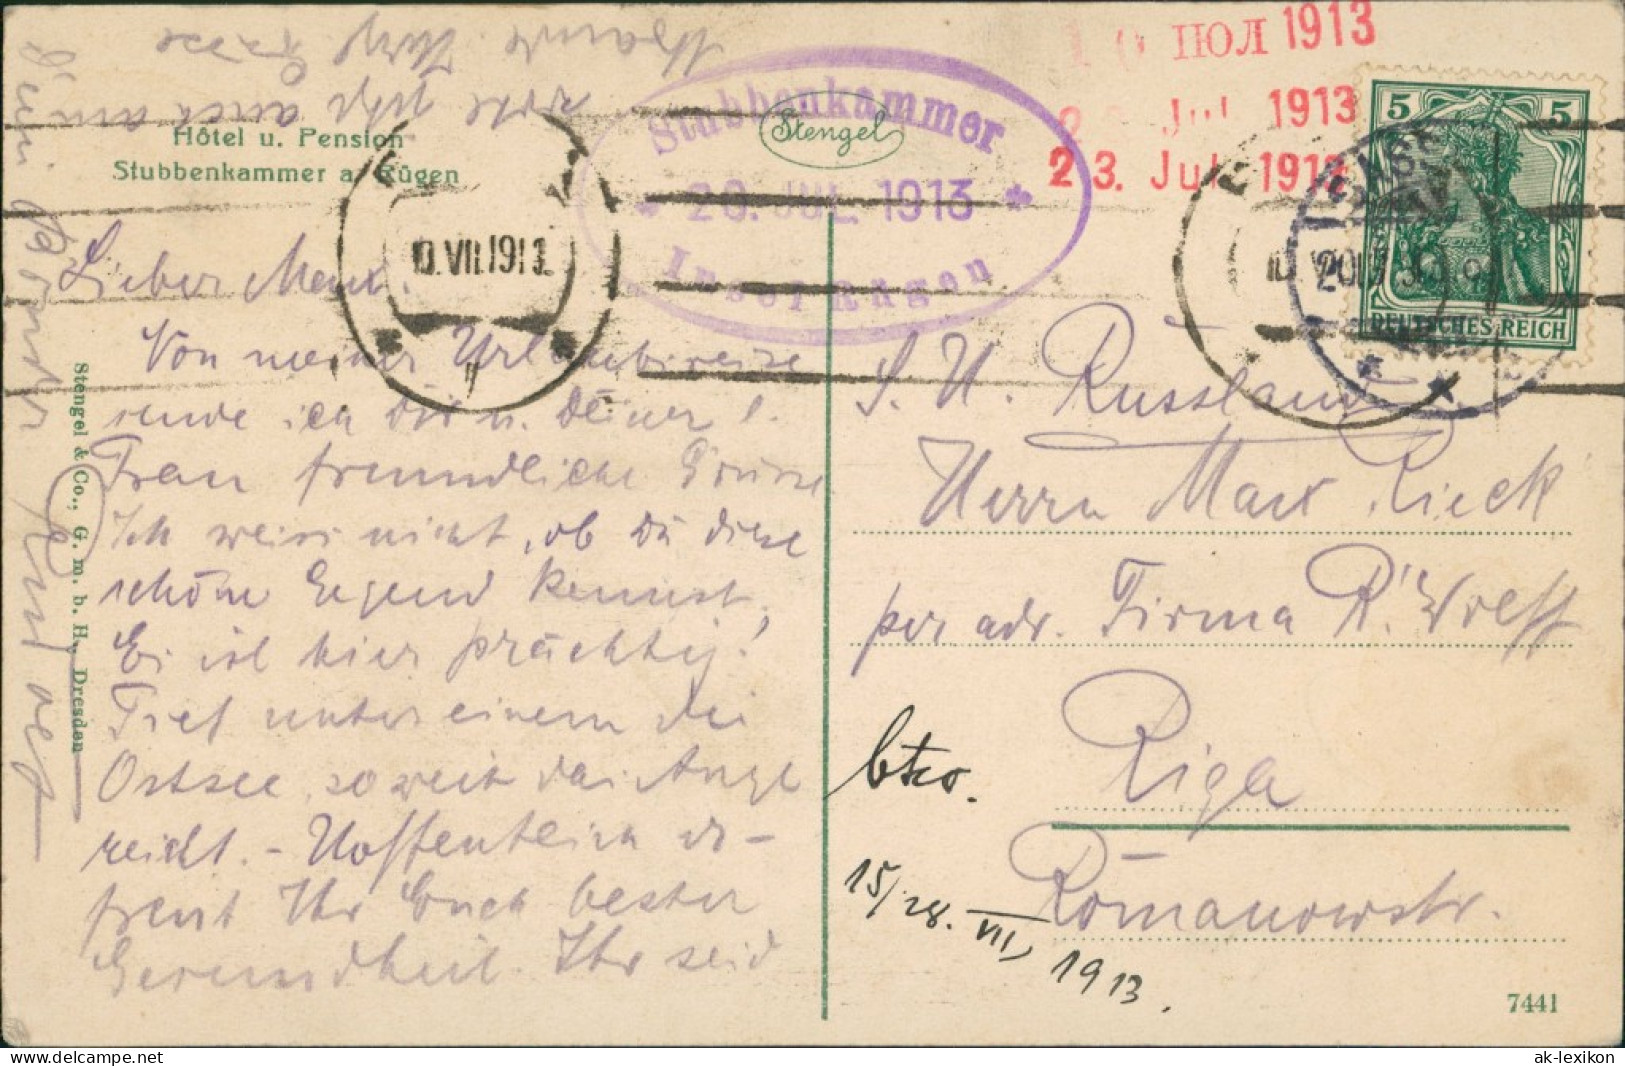 Hôtel u. Pension
Stubbenkammer a. Rügen
Stengel
Stubbenkammer
* 20. JUL 1913 *
Insel Rügen
10 ІЮЛ 1913
Jul 1913
23. Jul 1913
5 5
DEUTSCHES REICH
10.VII.1913
Lieber Max.
Von meiner Urlaubsreise
sende ich Dir u. Deiner l.
Frau freundliche Grüsse
Ich weiss nicht, ob Du diese
schöne Gegend kennst,
Es ist hier prächtig!
Tief unter einem die
Ostsee, soweit das Auge
reicht. - Hoffentlich er-
freut Ihr Euch bester
Gesundheit. Ihr seid
wohl jetzt auch am
Dein Bruder
Stengel & Co., G. m. b. H., Dresden
Russland
Herrn Max Rieck
per adr. Firma R. Wolff
Riga
Romanowstr.
15/28. VII, 1913.
7441
ak-lexikon
www.delcampe.net